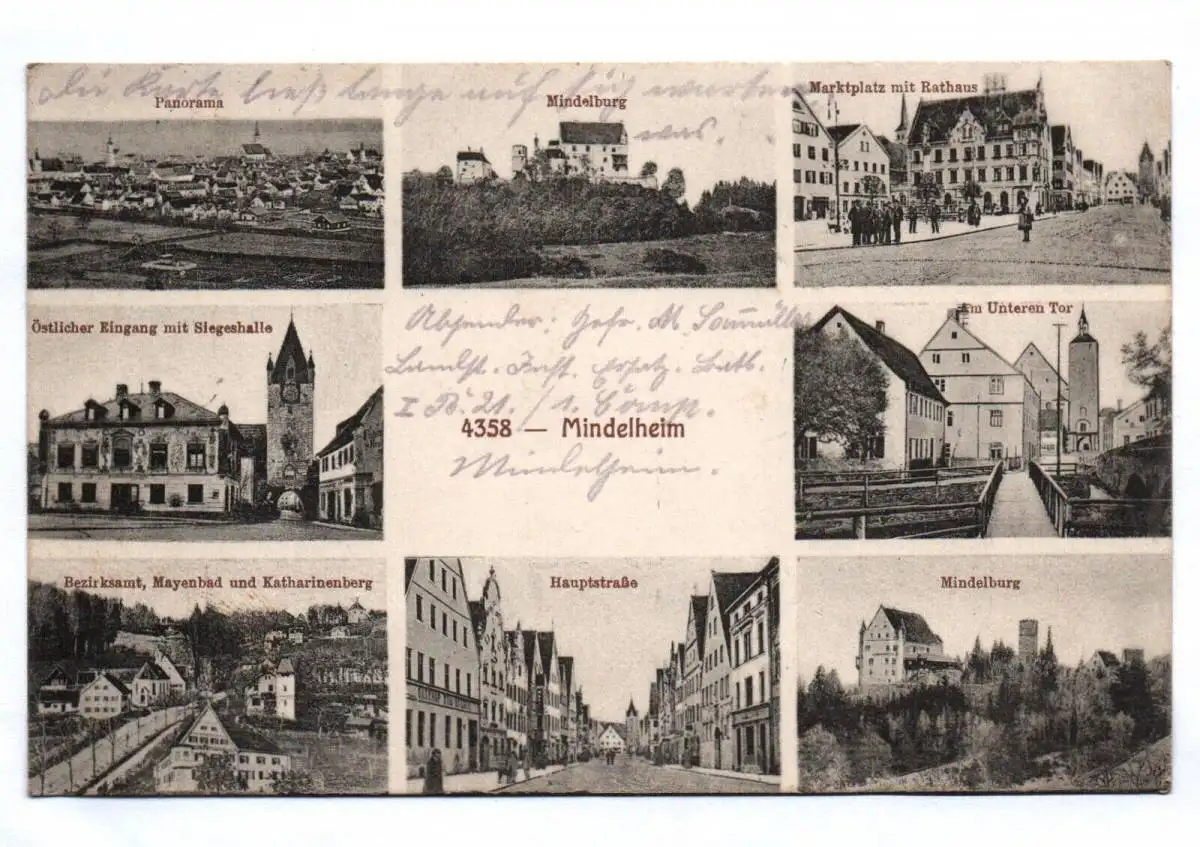 Die Karte ließ lange auf sich warten
was.
Panorama
Mindelburg
Marktplatz mit Rathaus
Östlicher Eingang mit Siegeshalle
Absender: Gefr. M.
Landst. Inft. Ersatz. Batl.
I B. 21. / 1. Comp.
4358 — Mindelheim
Mindelheim.
Am Unteren Tor
Bezirksamt, Mayenbad und Katharinenberg
Hauptstraße
Mindelburg